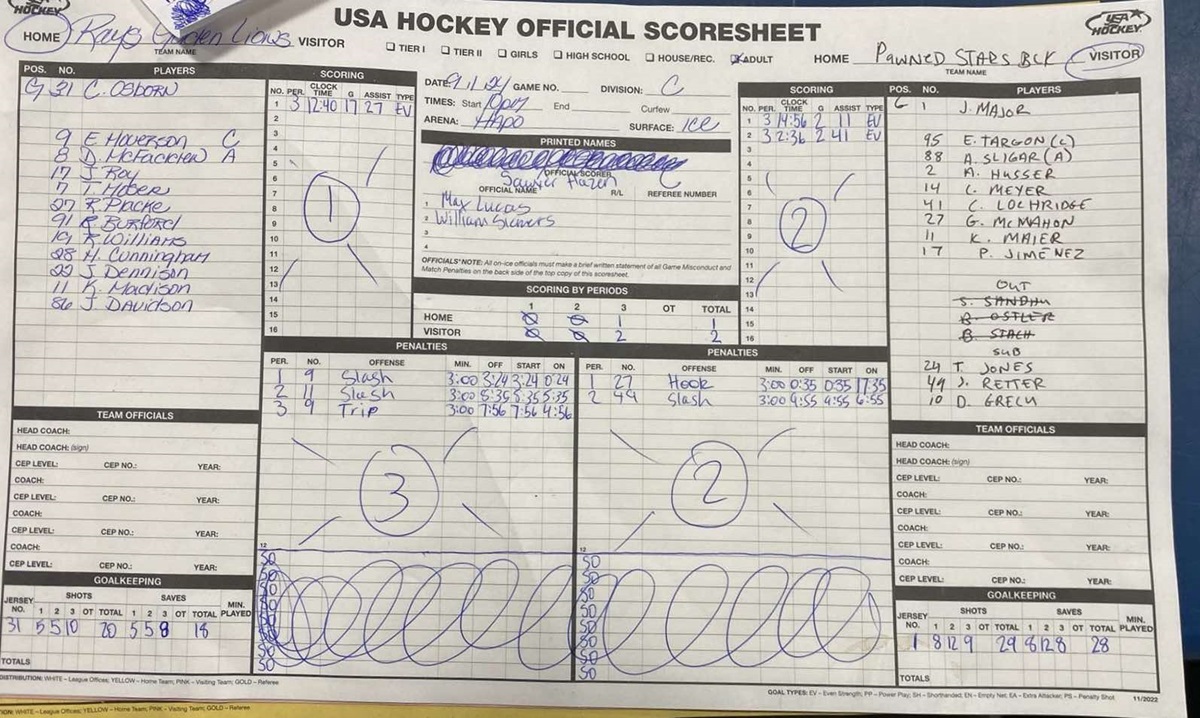 USA HOCKEY OFFICIAL SCORESHEET
HOCKEY
USA HOCKEY
HOME Rays Golden Lions VISITOR
TEAM NAME
TIER I TIER II GIRLS HIGH SCHOOL HOUSE/REC. ADULT
HOME Pawned Stars BLK VISITOR
TEAM NAME
POS. NO. PLAYERS
G 31 C. Osborn
9 E Haverson C
8 D. McFadden A
17 J. Roy
7 T. Huber
27 R Packe
91 R Burford
19 K Williams
28 H. Cunningham
22 J Dennison
11 K. Madison
86 J Davidson
SCORING
NO. PER. CLOCK TIME G ASSIST TYPE
1 3 12:40 17 27 EV
2
3
4
5
6
7
8
9
10
11
12
13
14
15
16
1
DATE: 9/1/24 GAME NO. DIVISION: C
TIMES: Start 10pm End Curfew
ARENA: Hapo SURFACE: ICE
PRINTED NAMES
OFFICIAL SCORER
Sawyer Hazen
OFFICIAL NAME R/L REFEREE NUMBER
1 Max Lucas
2 William Sievers
3
4
OFFICIALS' NOTE: All on-ice officials must make a brief written statement of all Game Misconduct and
Match Penalties on the back side of the top copy of this scoresheet.
SCORING BY PERIODS
1 2 3 OT TOTAL
HOME 0 0 1 1
VISITOR 0 0 2 2
SCORING
NO. PER. CLOCK TIME G ASSIST TYPE
1 3 14:56 2 11 EV
2 3 2:36 2 41 EV
3
4
5
6
7
8
9
10
11
12
13
14
15
16
2
POS. NO. PLAYERS
G 1 J. MAJOR
95 E. TARGON (C)
88 A. SLIGAR (A)
2 A. HUSSER
14 C. MEYER
41 C. LOCHRIDGE
27 G. McMAHON
11 K. MAIER
17 P. JIMENEZ
OUT
S. SANDHU
B. OSTLER
B. STACH
SUB
24 T. JONES
49 J. RETTER
10 D. GRECH
PENALTIES
PER. NO. OFFENSE MIN. OFF START ON
1 9 Slash 3:00 3:24 3:24 0:24
2 11 Slash 3:00 5:35 5:35 5:35
3 9 Trip 3:00 7:56 7:56 4:56
3
12
PENALTIES
PER. NO. OFFENSE MIN. OFF START ON
1 27 Hook 3:00 0:35 0:35 17:35
2 49 Slash 3:00 9:55 9:55 6:55
2
12
TEAM OFFICIALS
HEAD COACH:
HEAD COACH: (sign)
CEP LEVEL: CEP NO.: YEAR:
COACH:
CEP LEVEL: CEP NO.: YEAR:
COACH:
CEP LEVEL: CEP NO.: YEAR:
COACH:
CEP LEVEL: CEP NO.: YEAR:
GOALKEEPING
JERSEY NO. SHOTS 1 2 3 OT TOTAL SAVES 1 2 3 OT TOTAL MIN. PLAYED
31 5 5 10 20 5 5 8 18
TOTALS
SO
SO
SO
SO
SO
SO
SO
SO
SO
SO
SO
SO
SO
SO
TEAM OFFICIALS
HEAD COACH:
HEAD COACH: (sign)
CEP LEVEL: CEP NO.: YEAR:
COACH:
CEP LEVEL: CEP NO.: YEAR:
COACH:
CEP LEVEL: CEP NO.: YEAR:
COACH:
CEP LEVEL: CEP NO.: YEAR:
GOALKEEPING
JERSEY NO. SHOTS 1 2 3 OT TOTAL SAVES 1 2 3 OT TOTAL MIN. PLAYED
1 8 12 9 29 8 12 8 28
TOTALS
DISTRIBUTION: WHITE – League Offices; YELLOW – Home Team; PINK – Visiting Team; GOLD – Referee
GOAL TYPES: EV – Even Strength; PP – Power Play; SH – Shorthanded; EN – Empty Net; EA – Extra Attacker; PS – Penalty Shot 11/2022
ION: WHITE – League Offices; YELLOW – Home Team; PINK – Visiting Team; GOLD – Referee